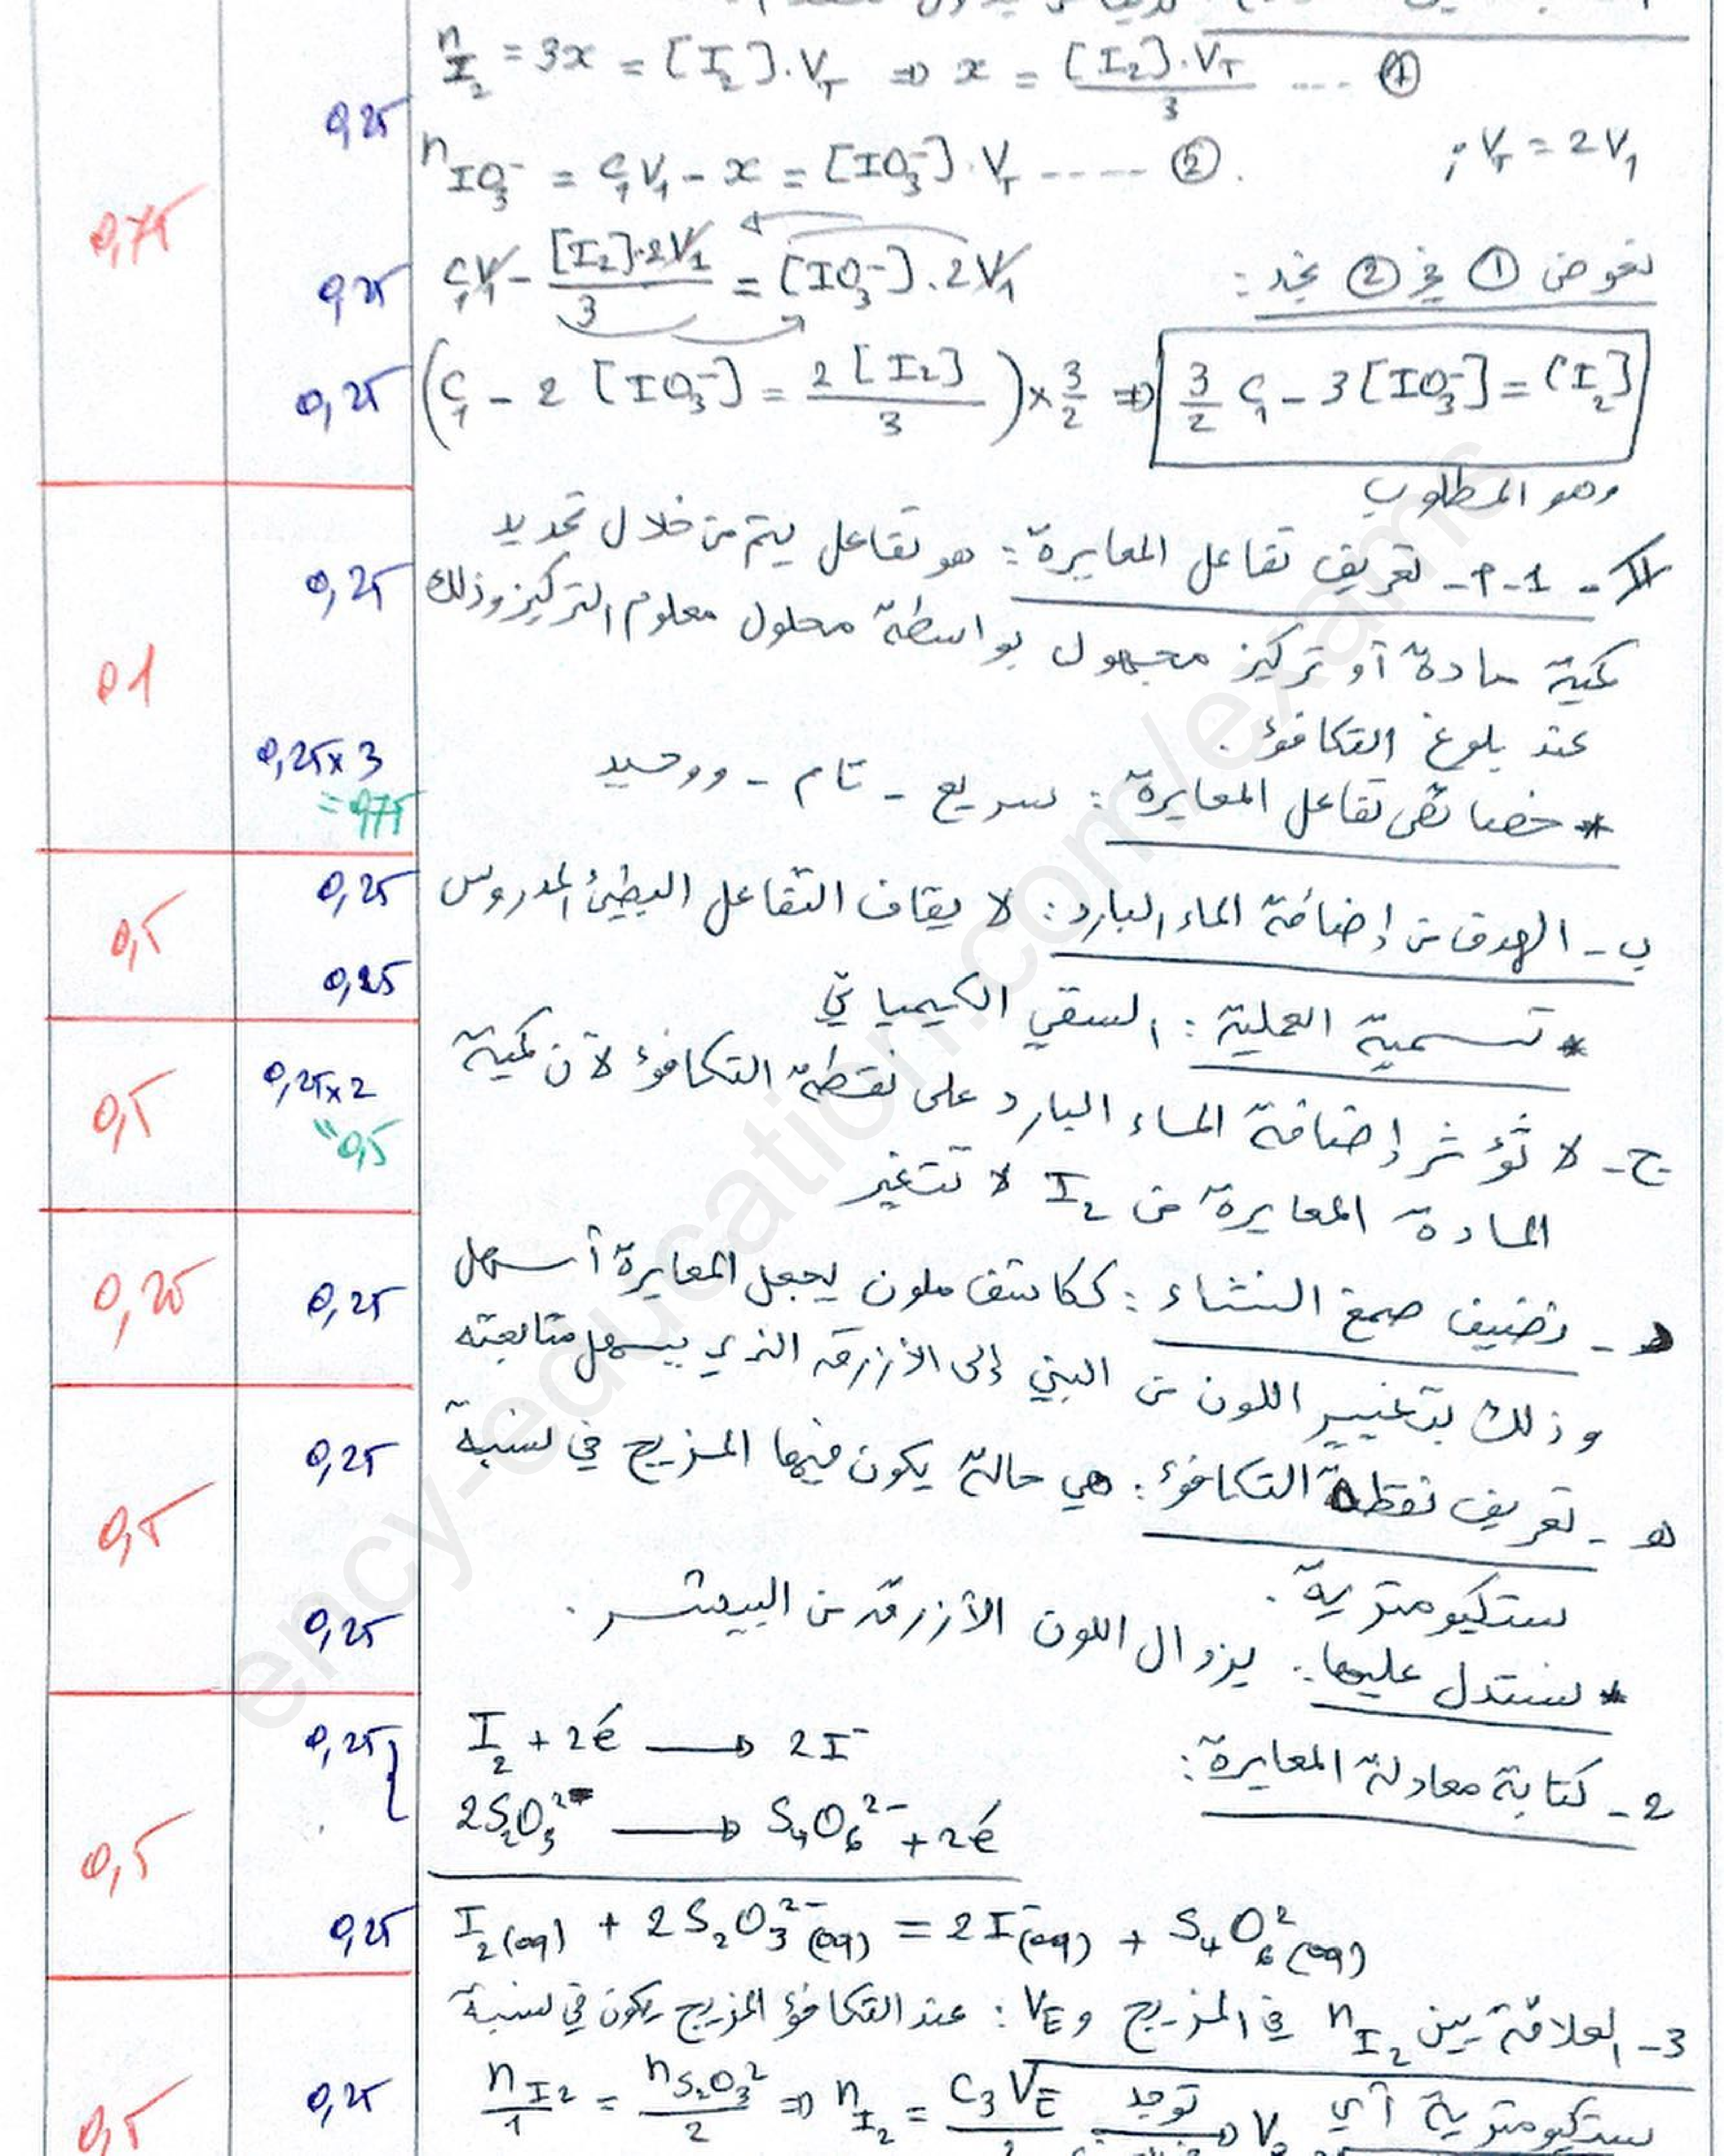 n I₂ = 3x = [I₂].V_T ⇒ x = [I₂].V_T / 3 .... ①
0,25
n IO₃⁻ = C₁V₁ - x = [IO₃⁻].V_T ..... ②. ; V_T = 2V₁
0,75
نعوض ① في ② نجد :
0,25 C₁V₁ - [I₂].2V₁ / 3 = [IO₃⁻].2V₁
0,25 (C₁ - 2[IO₃⁻] = 2[I₂] / 3) × 3/2 ⇒ 3/2 C₁ - 3[IO₃⁻] = [I₂]
وهو المطلوب
II - 1 - أ - تعريف تفاعل المعايرة : هو تفاعل يتم من خلال تحديد
0,25
كمية مادة أو تركيز مجهول بواسطة محلول معلوم التركيز وذلك
01
عند بلوغ التكافؤ .
* خصائص تفاعل المعايرة : سريع - تام - ووحيد
0,25×3
=0,75
ب - الهدف من إضافة الماء البارد : لايقاف التفاعل البطيئ المدروس
0,25
0,5
* تسمية العملية : السقي الكيميائي
0,25
ج - لا تؤثر إضافة الماء البارد على نقطة التكافؤ لأن كمية
0,25×2
=0,5
0,5
المادة المعايرة من I₂ لا تتغير
د - نضيف صمغ النشاء : ككاشف ملون يجعل المعايرة أسهل
0,25
0,25
وذلك بتغيير اللون من البني إلى الأزرق الذي يسهل متابعته
هـ - تعريف نقطة التكافؤ : هي حالة يكون فيها المزيج في نسبة
0,25
0,5
ستكيومترية .
* نستدل عليها : بزوال اللون الأزرق من البيشر .
0,25
2 - كتابة معادلة المعايرة :
0,25 I₂ + 2é → 2I⁻
2S₂O₃²⁻ → S₄O₆²⁻ + 2é
0,5
0,25 I₂(aq) + 2S₂O₃²⁻(aq) = 2I⁻(aq) + S₄O₆²(aq)
3 - العلاقة بين n I₂ في المزيج و V_E : عند التكافؤ المزيج يكون في نسبة
ستكيومترية أي
0,25 n I₂ / 1 = n S₂O₃² / 2 ⇒ n I₂ = C₃V_E
0,5
ency-education.com/exams